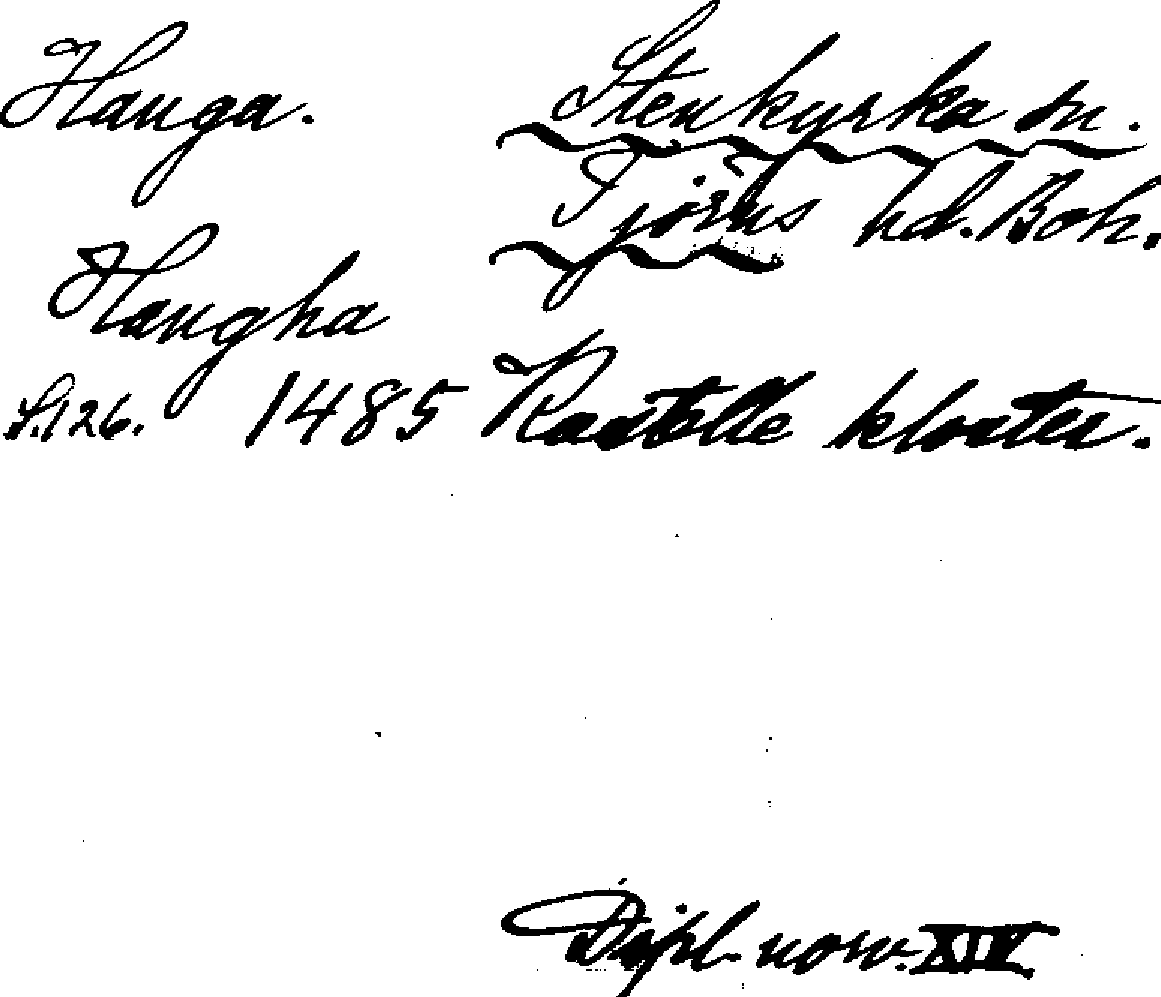 Hauga. Stenkyrka sn.
Tjörns hd. Boh.
Haugha
S. 126. 1485 Kastelle kloster.
Dipl. norv. XIV